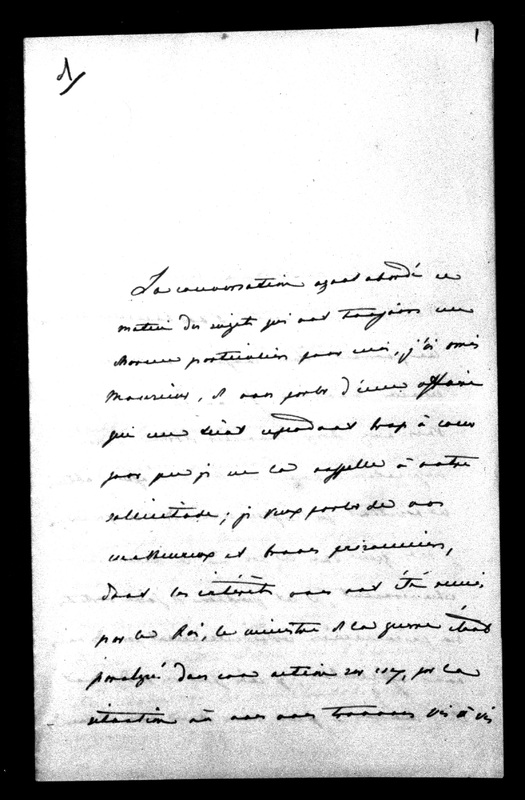 1
1
La conversation ayant abordé ce
matin des sujets qui ont toujours un
charme particulier pour moi, j'ai omis
Monsieur, de vous parler d'une affaire
qui me tient cependant trop à cœur
pour que je ne la rappelle à votre
sollicitude ; je veux parler de nos
malheureux et braves prisonniers,
dont les intérêts vous ont été remis
par le Roi, le ministre de la guerre étant
paralysé dans son action sur eux, par la
situation où nous nous trouvons vis à vis